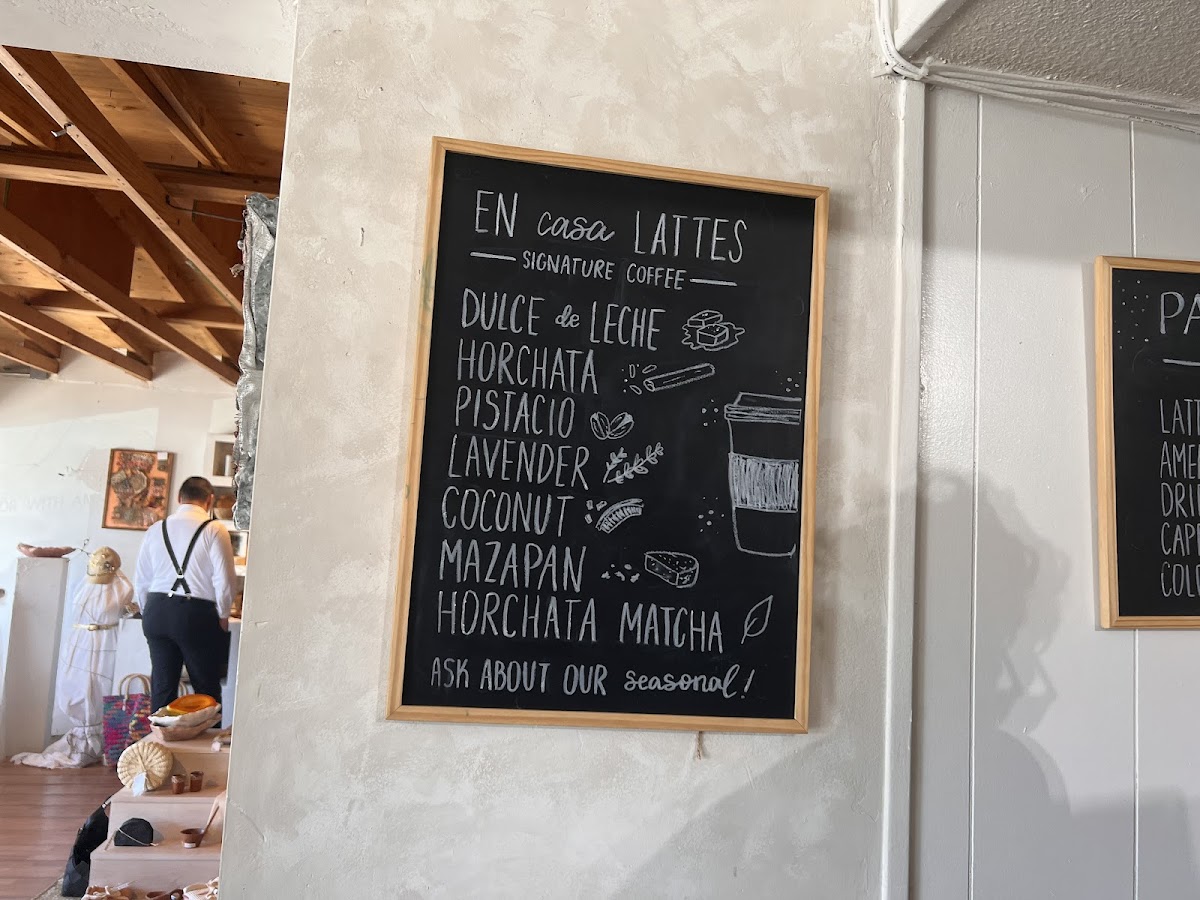 EN casa LATTES
SIGNATURE COFFEE
DULCE de LECHE
HORCHATA
PISTACIO
LAVENDER
COCONUT
MAZAPAN
HORCHATA MATCHA
ASK ABOUT OUR seasonal!